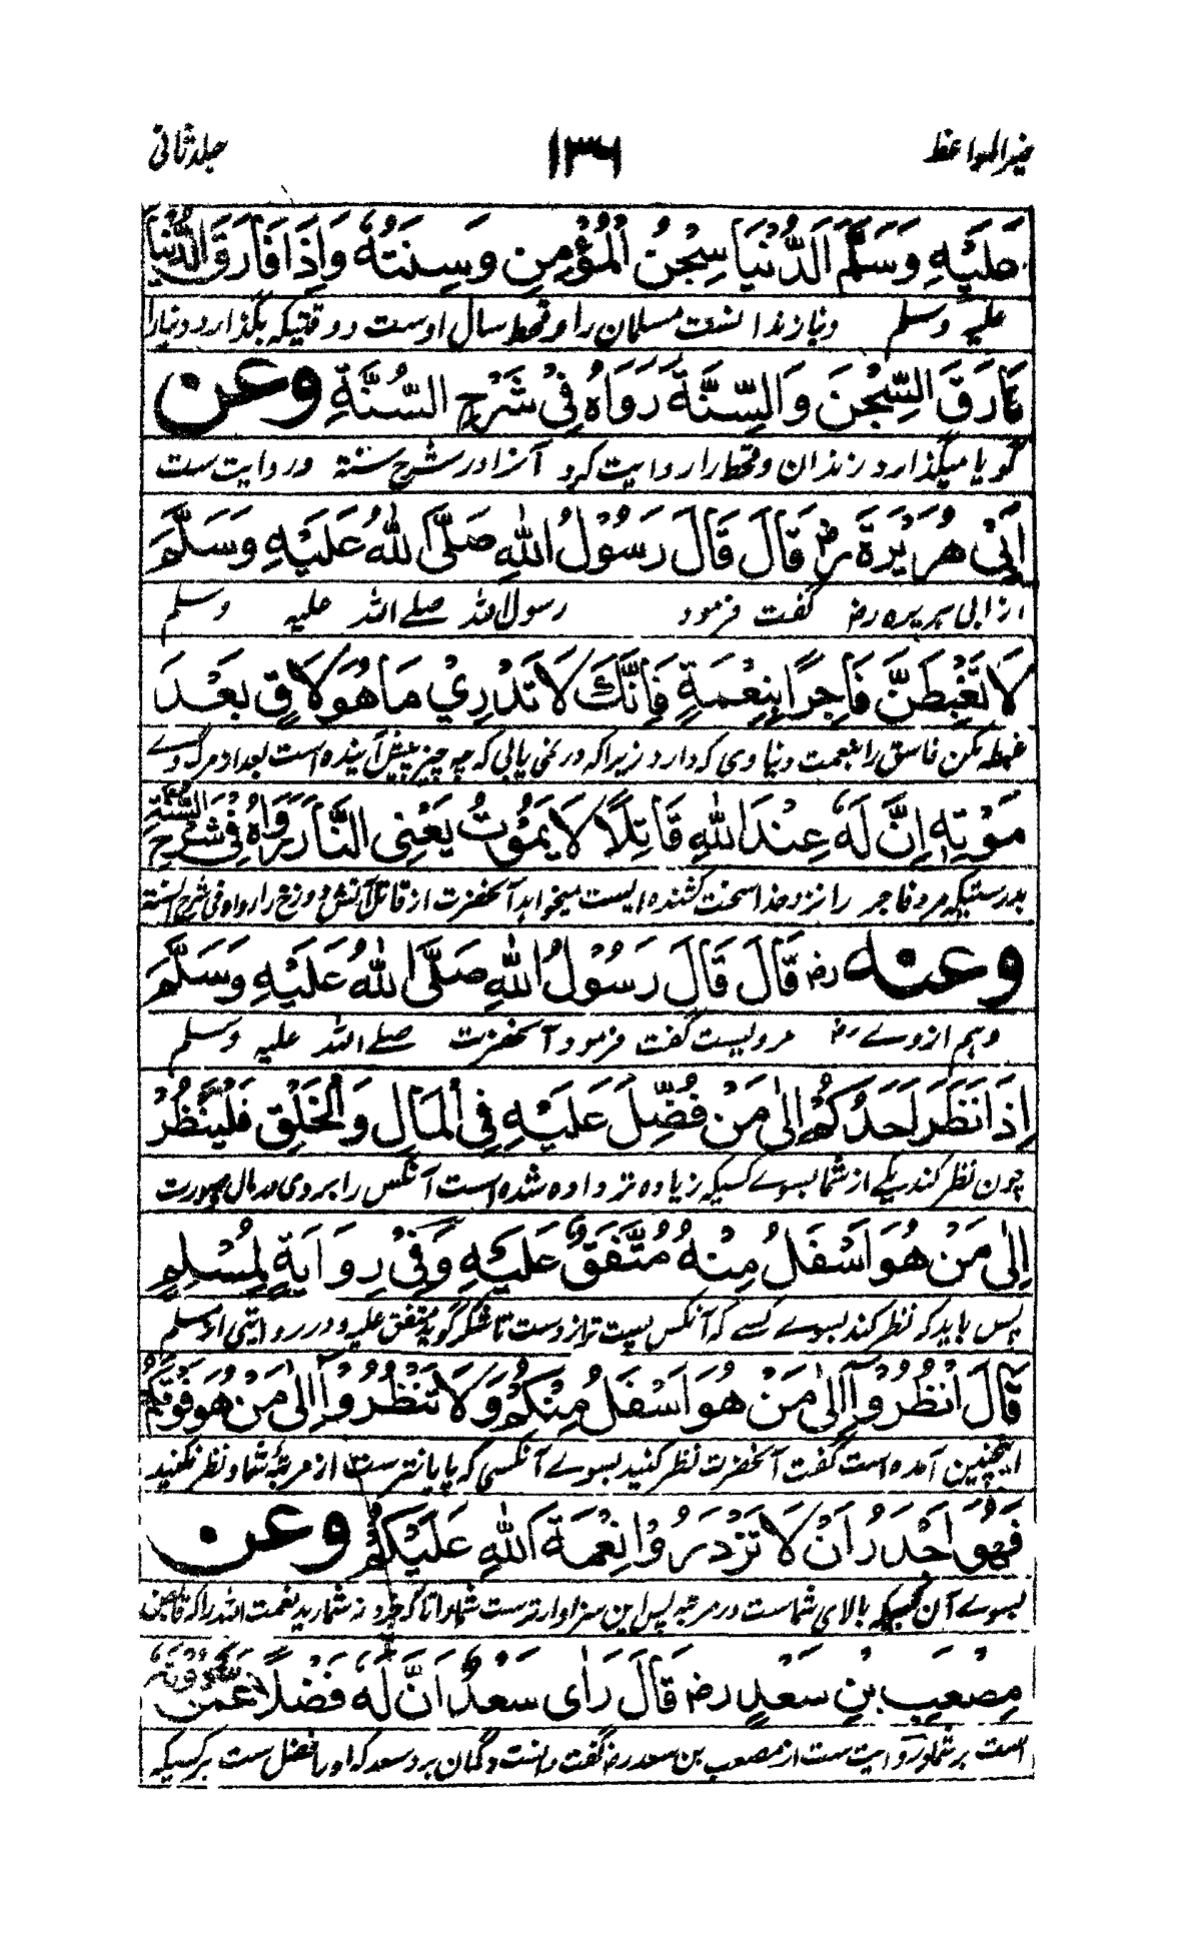 خیر المواعظ ۱۳۶ جلد ثانی
عَلَيْهِ وَسَلَّمَ اَلدُّنْيَا سِجْنُ الْمُؤْمِنِ وَسِنَتُهٗ وَاِذَا فَارَقَ الدُّنْيَا
علیہ وسلم دنیا زندانست مسلمان را و قحط سال اوست و وقتیکہ بگذارد دنیارا
فَارَقَ السِّجْنَ وَالسِّنَّةَ رَوَاهُ فِيْ شَرْحِ السُّنَّةِ وعن
گویا میگذارد زندان و قحط را روایت کرد آنرا در شرح سنتہ و روایت ست
اَبِيْ هُرَيْرَةَ رض قَالَ قَالَ رَسُوْلُ اللّٰهِ صَلَّى اللّٰهُ عَلَيْهِ وَسَلَّمَ
از ابی ہریرہ رض گفت فرمود رسول اللہ صلے اللہ علیہ وسلم
لَا تَغْبِطَنَّ فَاجِرًا بِنِعْمَةٍ فَاِنَّكَ لَا تَدْرِيْ مَا هُوَ لَاقٍ بَعْدَ
غبطہ مکن فاسق را بنعمت دنیاوی کہ دارد زیراکہ در نمی یابی کہ چہ چیز پیش آیندہ است بعد از مرگ وے
مَوْتِهٖ اِنَّ لَهٗ عِنْدَ اللّٰهِ قَاتِلًا لَا يَمُوْتُ يَعْنِى النَّارَ رَوَاهُ فِيْ شَرْحِ السُّنَّةِ
بدرستیکہ مرد فاجر را نزد خدا سخت کشندہ ایست میخواہد آنحضرت از قاتل آتش دوزخ را رواہ فی شرح السنۃ
وعنه رض قَالَ قَالَ رَسُوْلُ اللّٰهِ صَلَّى اللّٰهُ عَلَيْهِ وَسَلَّمَ
وہم ازوے رض مرویست گفت فرمود آنحضرت صلے اللہ علیہ وسلم
اِذَا نَظَرَ اَحَدُكُمْ اِلٰى مَنْ فُضِّلَ عَلَيْهِ فِى الْمَالِ وَالْخَلْقِ فَلْيَنْظُرْ
چون نظر کند یکے از شما بسوے کسیکہ زیادہ تر دادہ شدہ است آنکس را بروی در مال و صورت
اِلٰى مَنْ هُوَ اَسْفَلُ مِنْهُ مُتَّفَقٌ عَلَيْهِ وَفِيْ رِوَايَةٍ لِمُسْلِمٍ
پس باید کہ نظر کند بسوے کسے کہ آنکس پست تر ازوست تا شکر گوید متفق علیہ و در روایتی از مسلم
قَالَ اُنْظُرُوْا اِلٰى مَنْ هُوَ اَسْفَلُ مِنْكُمْ وَلَا تَنْظُرُوْا اِلٰى مَنْ هُوَ فَوْقَكُمْ
اینچنین آمدہ است گفت آنحضرت نظر کنید بسوے آنکسی کہ پایانتر ست از مرتبۂ شما و نظر نکنید
فَهُوَ اَجْدَرُ اَنْ لَا تَزْدَرُوْا نِعْمَةَ اللّٰهِ عَلَيْكُمْ وعن
بسوے آن کسیکہ بالای شماست در مرتبہ پس این سزاوارترست شماراتا کہ خرد نہ شمارید نعمت اللہ را کہ
مِصْعَبِ بْنِ سَعْدٍ رض قَالَ رَاٰى سَعْدٌ اَنَّ لَهٗ فَضْلًا عَلٰى مَنْ دُوْنَهٗ
است بر شما و روایت ست از مصعب بن سعد رض گفت دانست و گمان برد سعد کہ او را فضل ست بر کسیکہ